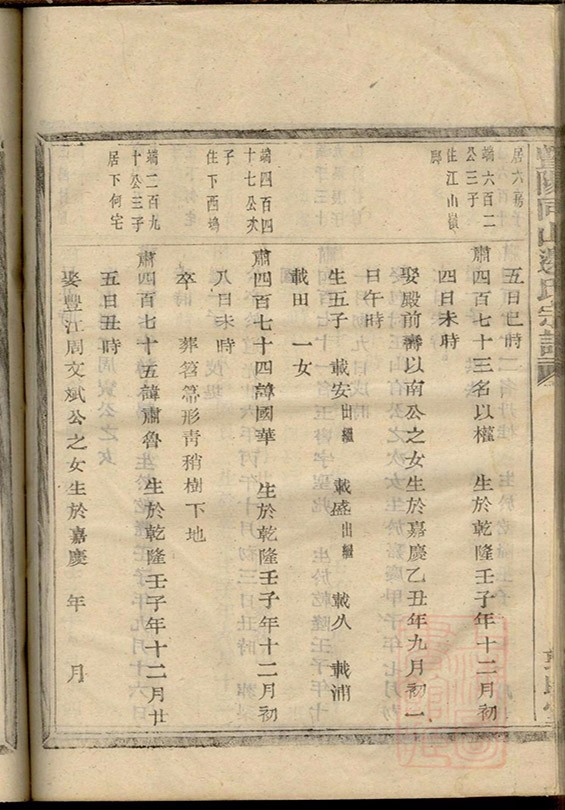 居六
端六百二
公三子
住江山嶺
脚
五日巳時
肅四百七十三名以權　生於乾隆壬子年十二月初
四日未時
娶殿前壽以南公之女生於嘉慶乙丑年九月初一
日午時
生五子　載安出繼　載盛出繼　載久　載浦
載田　一女
端四百四
十七公次
子
住下西塢
肅四百七十四諱國華　生於乾隆壬子年十二月初
八日未時
卒　葬笤箒形靑稍樹下地
端二百九
十公三子
居下何宅
肅四百七十五諱肅魯　生於乾隆壬子年十二月廿
五日丑時
娶豐江周文斌公之女生於嘉慶　年　月